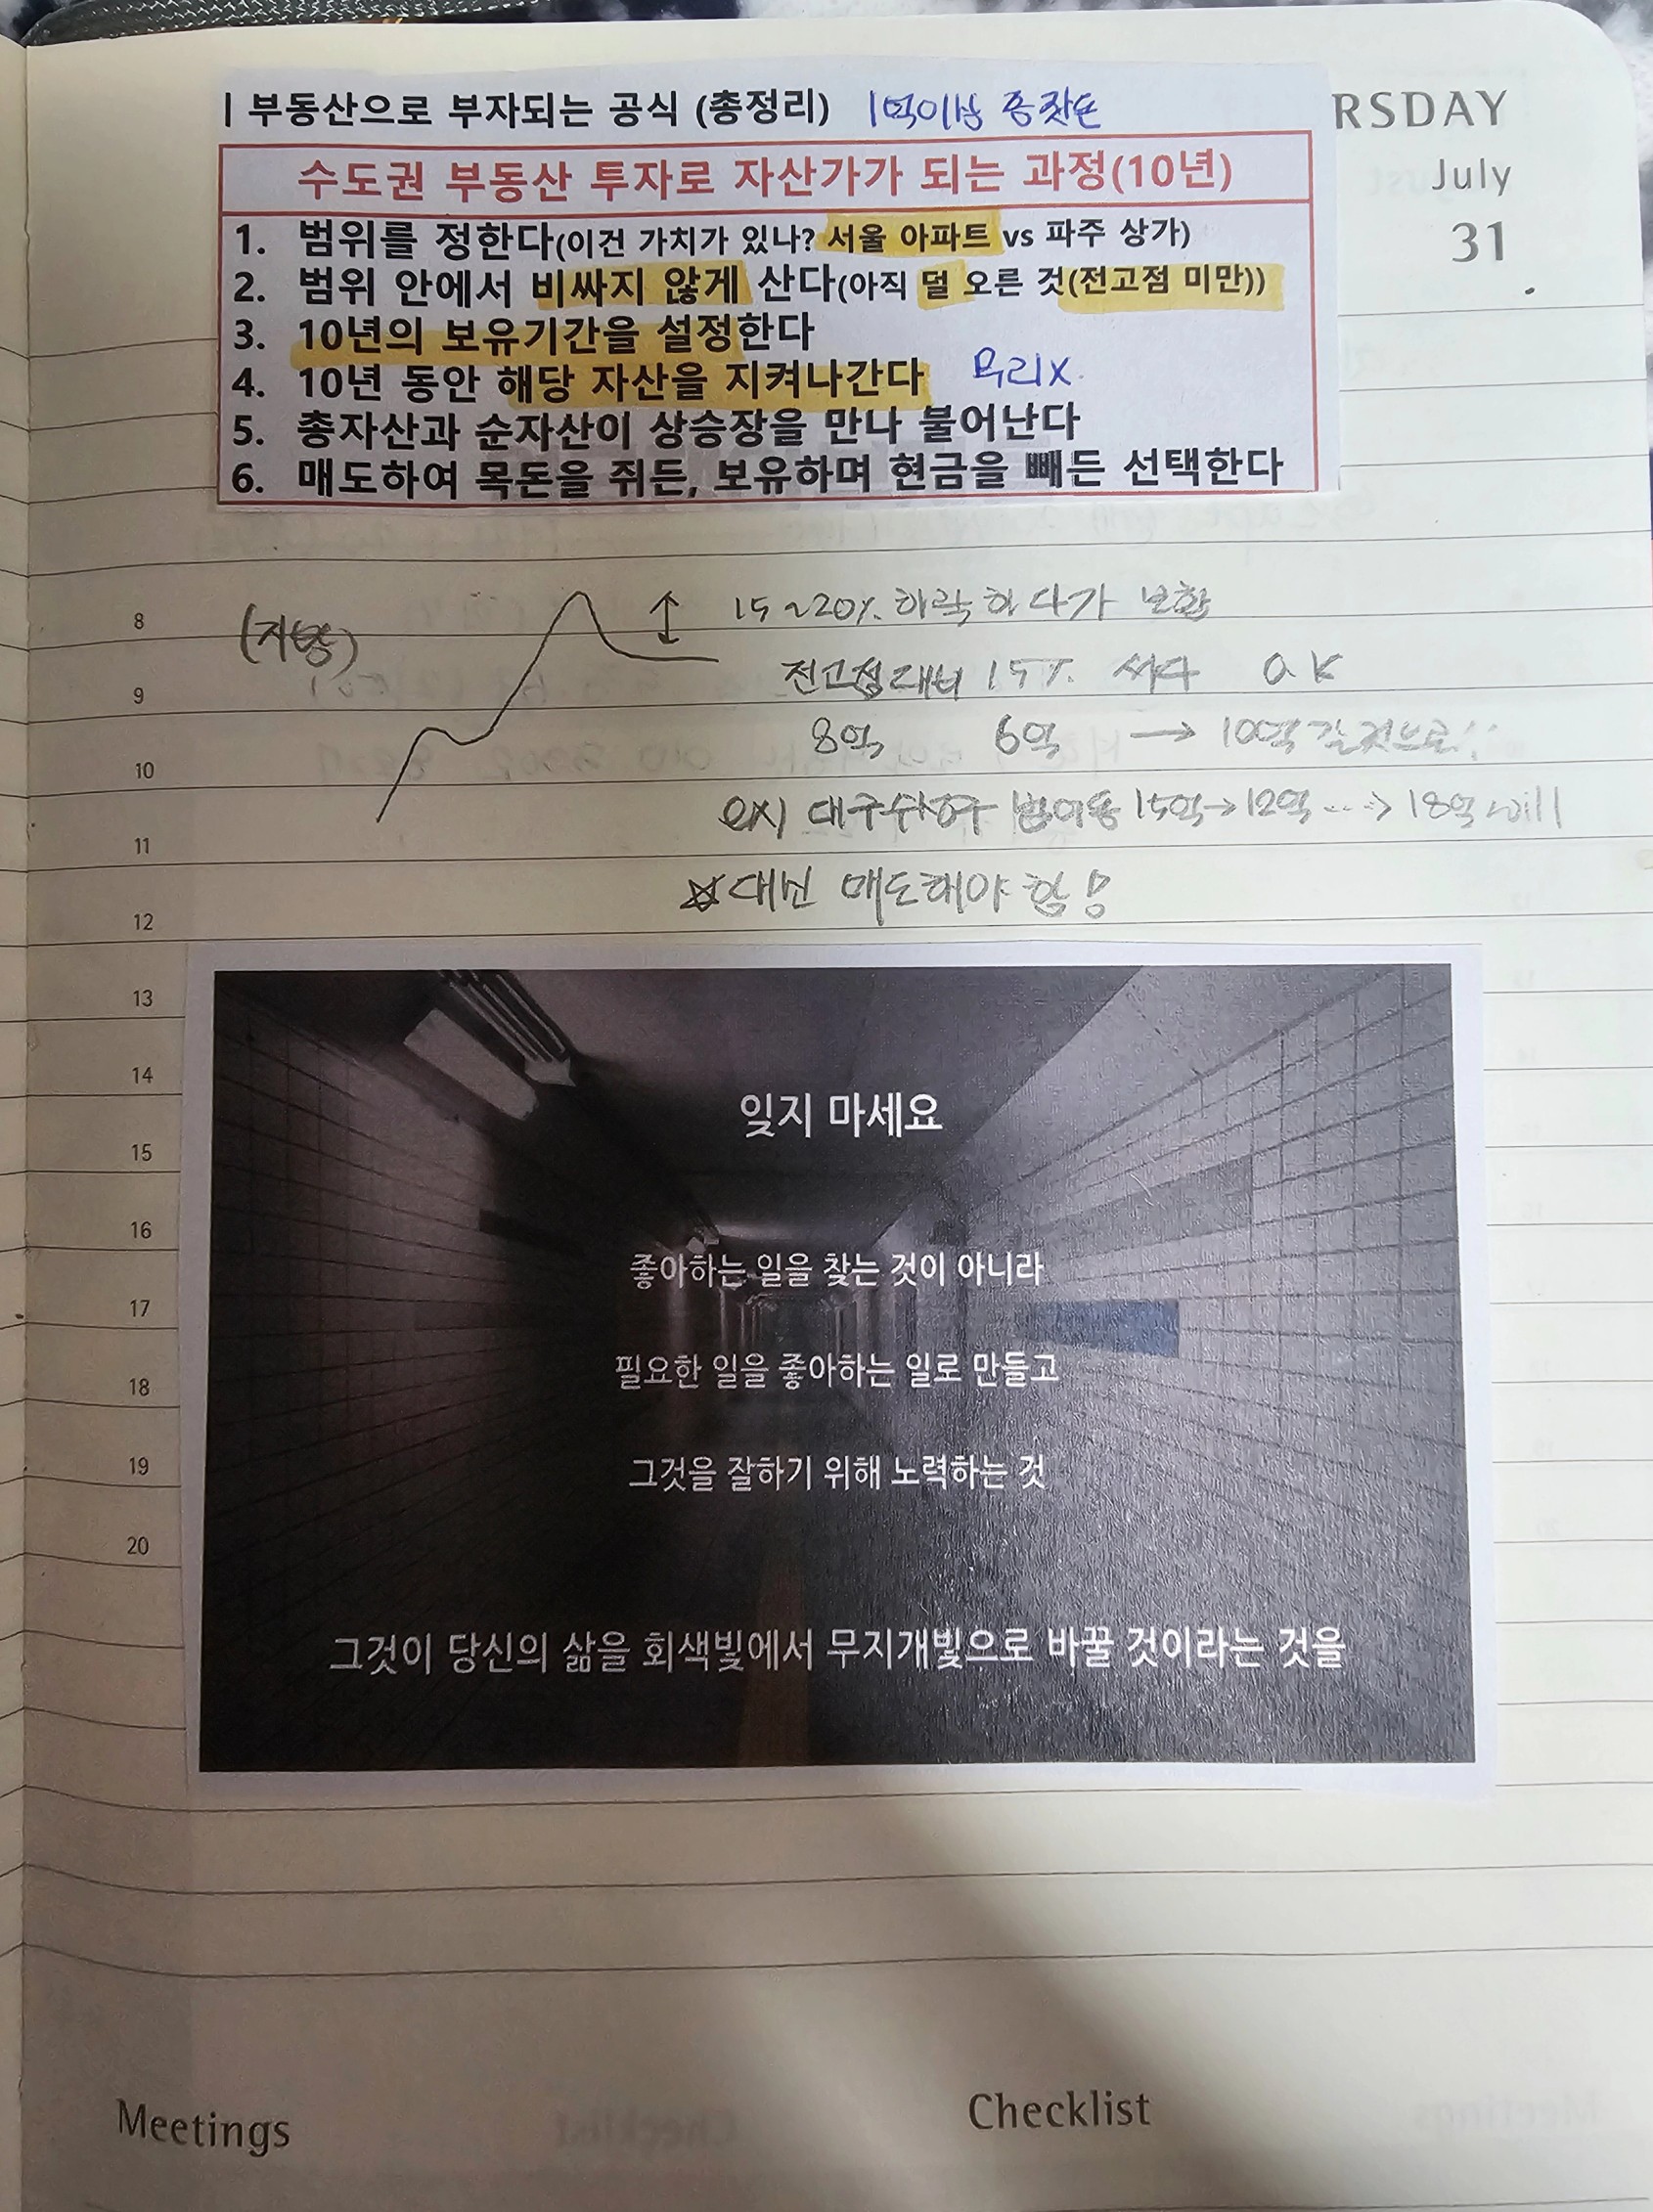 RSDAY
July
31
| 부동산으로 부자되는 공식 (총정리) 1억이상 종잣돈
수도권 부동산 투자로 자산가가 되는 과정(10년)
1. 범위를 정한다(이건 가치가 있나? 서울 아파트 vs 파주 상가)
2. 범위 안에서 비싸지 않게 산다(아직 덜 오른 것(전고점 미만))
3. 10년의 보유기간을 설정한다
4. 10년 동안 해당 자산을 지켜나간다 무리X
5. 총자산과 순자산이 상승장을 만나 불어난다
6. 매도하여 목돈을 쥐든, 보유하며 현금을 빼든 선택한다
8
(지방) 15~20% 하락하다가 보합
9
전고점대비 15% 싸다 OK
10
8억 6억 → 10억 갈것으로
11
예시 대구수성구 범어동 15억→12억 ···→ 18억 will
12
☆대신 매도해야 함!
13
14
15
16
17
18
19
20
잊지 마세요
좋아하는 일을 찾는 것이 아니라
필요한 일을 좋아하는 일로 만들고
그것을 잘하기 위해 노력하는 것
그것이 당신의 삶을 회색빛에서 무지개빛으로 바꿀 것이라는 것을
Meetings
Checklist